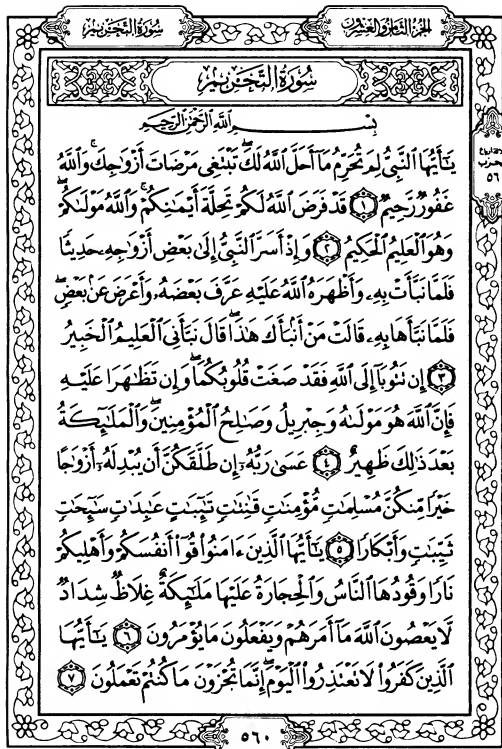 الجزء الثامن والعشرون
سورة التحريم
سُورَةُ التَّحۡرِيمِ
بِسۡمِ ٱللَّهِ ٱلرَّحۡمَٰنِ ٱلرَّحِيمِ
يَٰٓأَيُّهَا ٱلنَّبِيُّ لِمَ تُحَرِّمُ مَآ أَحَلَّ ٱللَّهُ لَكَۖ تَبۡتَغِي مَرۡضَاتَ أَزۡوَٰجِكَۚ وَٱللَّهُ
غَفُورٞ رَّحِيمٞ ١ قَدۡ فَرَضَ ٱللَّهُ لَكُمۡ تَحِلَّةَ أَيۡمَٰنِكُمۡۚ وَٱللَّهُ مَوۡلَىٰكُمۡۖ
وَهُوَ ٱلۡعَلِيمُ ٱلۡحَكِيمُ ٢ وَإِذۡ أَسَرَّ ٱلنَّبِيُّ إِلَىٰ بَعۡضِ أَزۡوَٰجِهِۦ حَدِيثٗا
فَلَمَّا نَبَّأَتۡ بِهِۦ وَأَظۡهَرَهُ ٱللَّهُ عَلَيۡهِ عَرَّفَ بَعۡضَهُۥ وَأَعۡرَضَ عَنۢ بَعۡضٖۖ
فَلَمَّا نَبَّأَهَا بِهِۦ قَالَتۡ مَنۡ أَنۢبَأَكَ هَٰذَاۖ قَالَ نَبَّأَنِيَ ٱلۡعَلِيمُ ٱلۡخَبِيرُ
٣ إِن تَتُوبَآ إِلَى ٱللَّهِ فَقَدۡ صَغَتۡ قُلُوبُكُمَاۖ وَإِن تَظَٰهَرَا عَلَيۡهِ
فَإِنَّ ٱللَّهَ هُوَ مَوۡلَىٰهُ وَجِبۡرِيلُ وَصَٰلِحُ ٱلۡمُؤۡمِنِينَۖ وَٱلۡمَلَٰٓئِكَةُ
بَعۡدَ ذَٰلِكَ ظَهِيرٌ ٤ عَسَىٰ رَبُّهُۥٓ إِن طَلَّقَكُنَّ أَن يُبۡدِلَهُۥٓ أَزۡوَٰجًا
خَيۡرٗا مِّنكُنَّ مُسۡلِمَٰتٖ مُّؤۡمِنَٰتٖ قَٰنِتَٰتٖ تَٰٓئِبَٰتٍ عَٰبِدَٰتٖ سَٰٓئِحَٰتٖ
ثَيِّبَٰتٖ وَأَبۡكَارٗا ٥ يَٰٓأَيُّهَا ٱلَّذِينَ ءَامَنُواْ قُوٓاْ أَنفُسَكُمۡ وَأَهۡلِيكُمۡ
نَارٗا وَقُودُهَا ٱلنَّاسُ وَٱلۡحِجَارَةُ عَلَيۡهَا مَلَٰٓئِكَةٌ غِلَاظٞ شِدَادٞ
لَّا يَعۡصُونَ ٱللَّهَ مَآ أَمَرَهُمۡ وَيَفۡعَلُونَ مَا يُؤۡمَرُونَ ٦ يَٰٓأَيُّهَا
ٱلَّذِينَ كَفَرُواْ لَا تَعۡتَذِرُواْ ٱلۡيَوۡمَۖ إِنَّمَا تُجۡزَوۡنَ مَا كُنتُمۡ تَعۡمَلُونَ ٧
الحزب
٥٦
٥٦٠